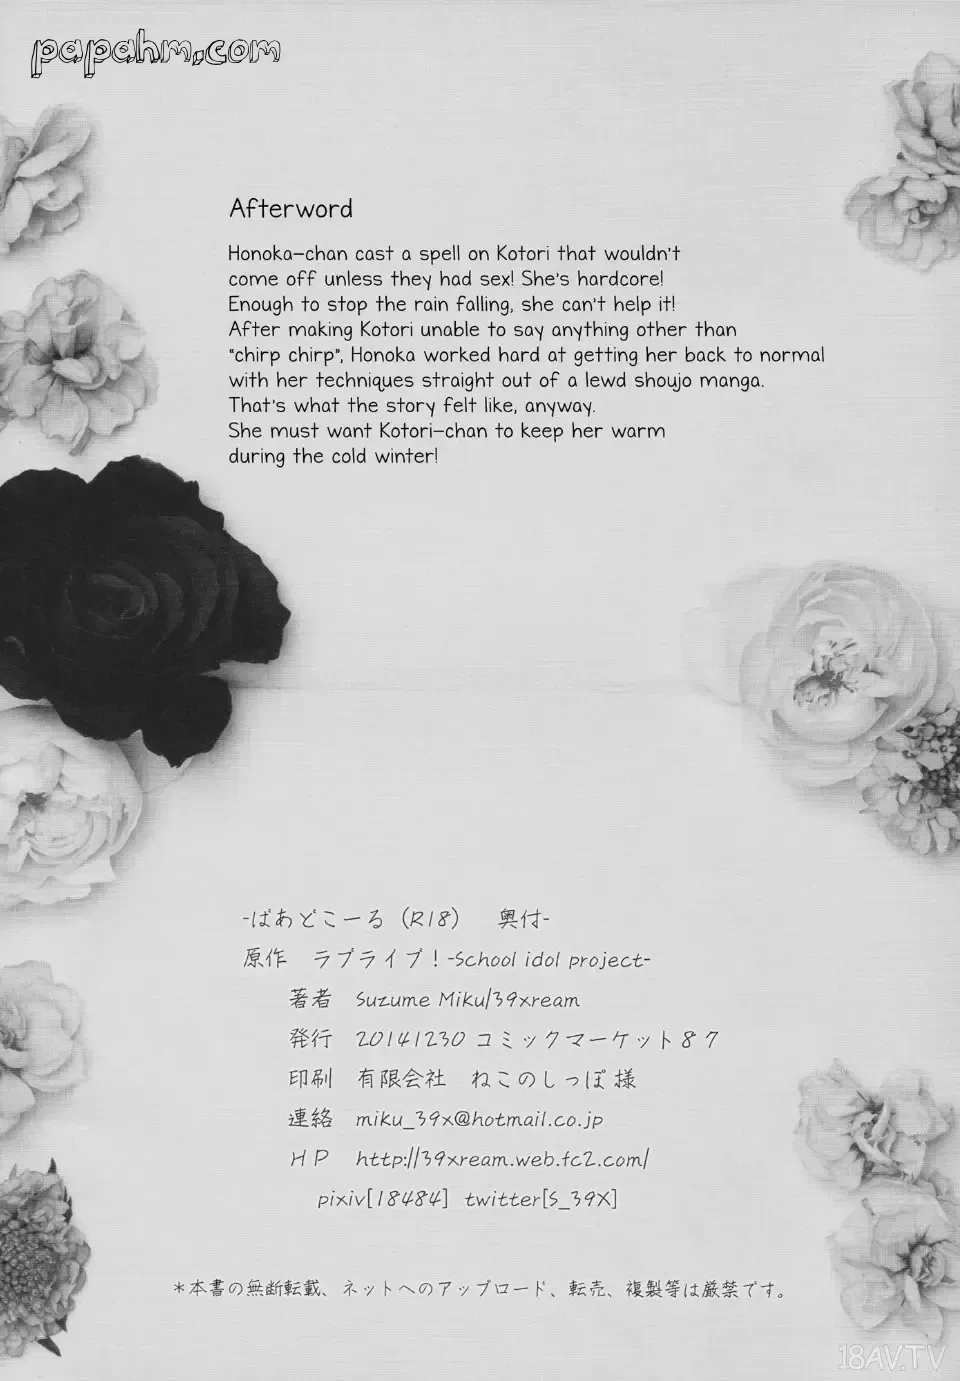 papahm.com
Afterword
Honoka-chan cast a spell on Kotori that wouldn't
come off unless they had sex! She's hardcore!
Enough to stop the rain falling, she can't help it!
After making Kotori unable to say anything other than
"chirp chirp", Honoka worked hard at getting her back to normal
with her techniques straight out of a lewd shoujo manga.
That's what the story felt like, anyway.
She must want Kotori-chan to keep her warm
during the cold winter!
-ばあどこーる（R18） 奥付-
原作 ラブライブ！-School idol project-
著者 Suzume Miku/39xream
発行 20141230 コミックマーケット８７
印刷 有限会社 ねこのしっぽ 様
連絡 miku_39x@hotmail.co.jp
ＨＰ http://39xream.web.fc2.com/
pixiv[18484] twitter[S_39X]
＊本書の無断転載、ネットへのアップロード、転売、複製等は厳禁です。
18AV.TV